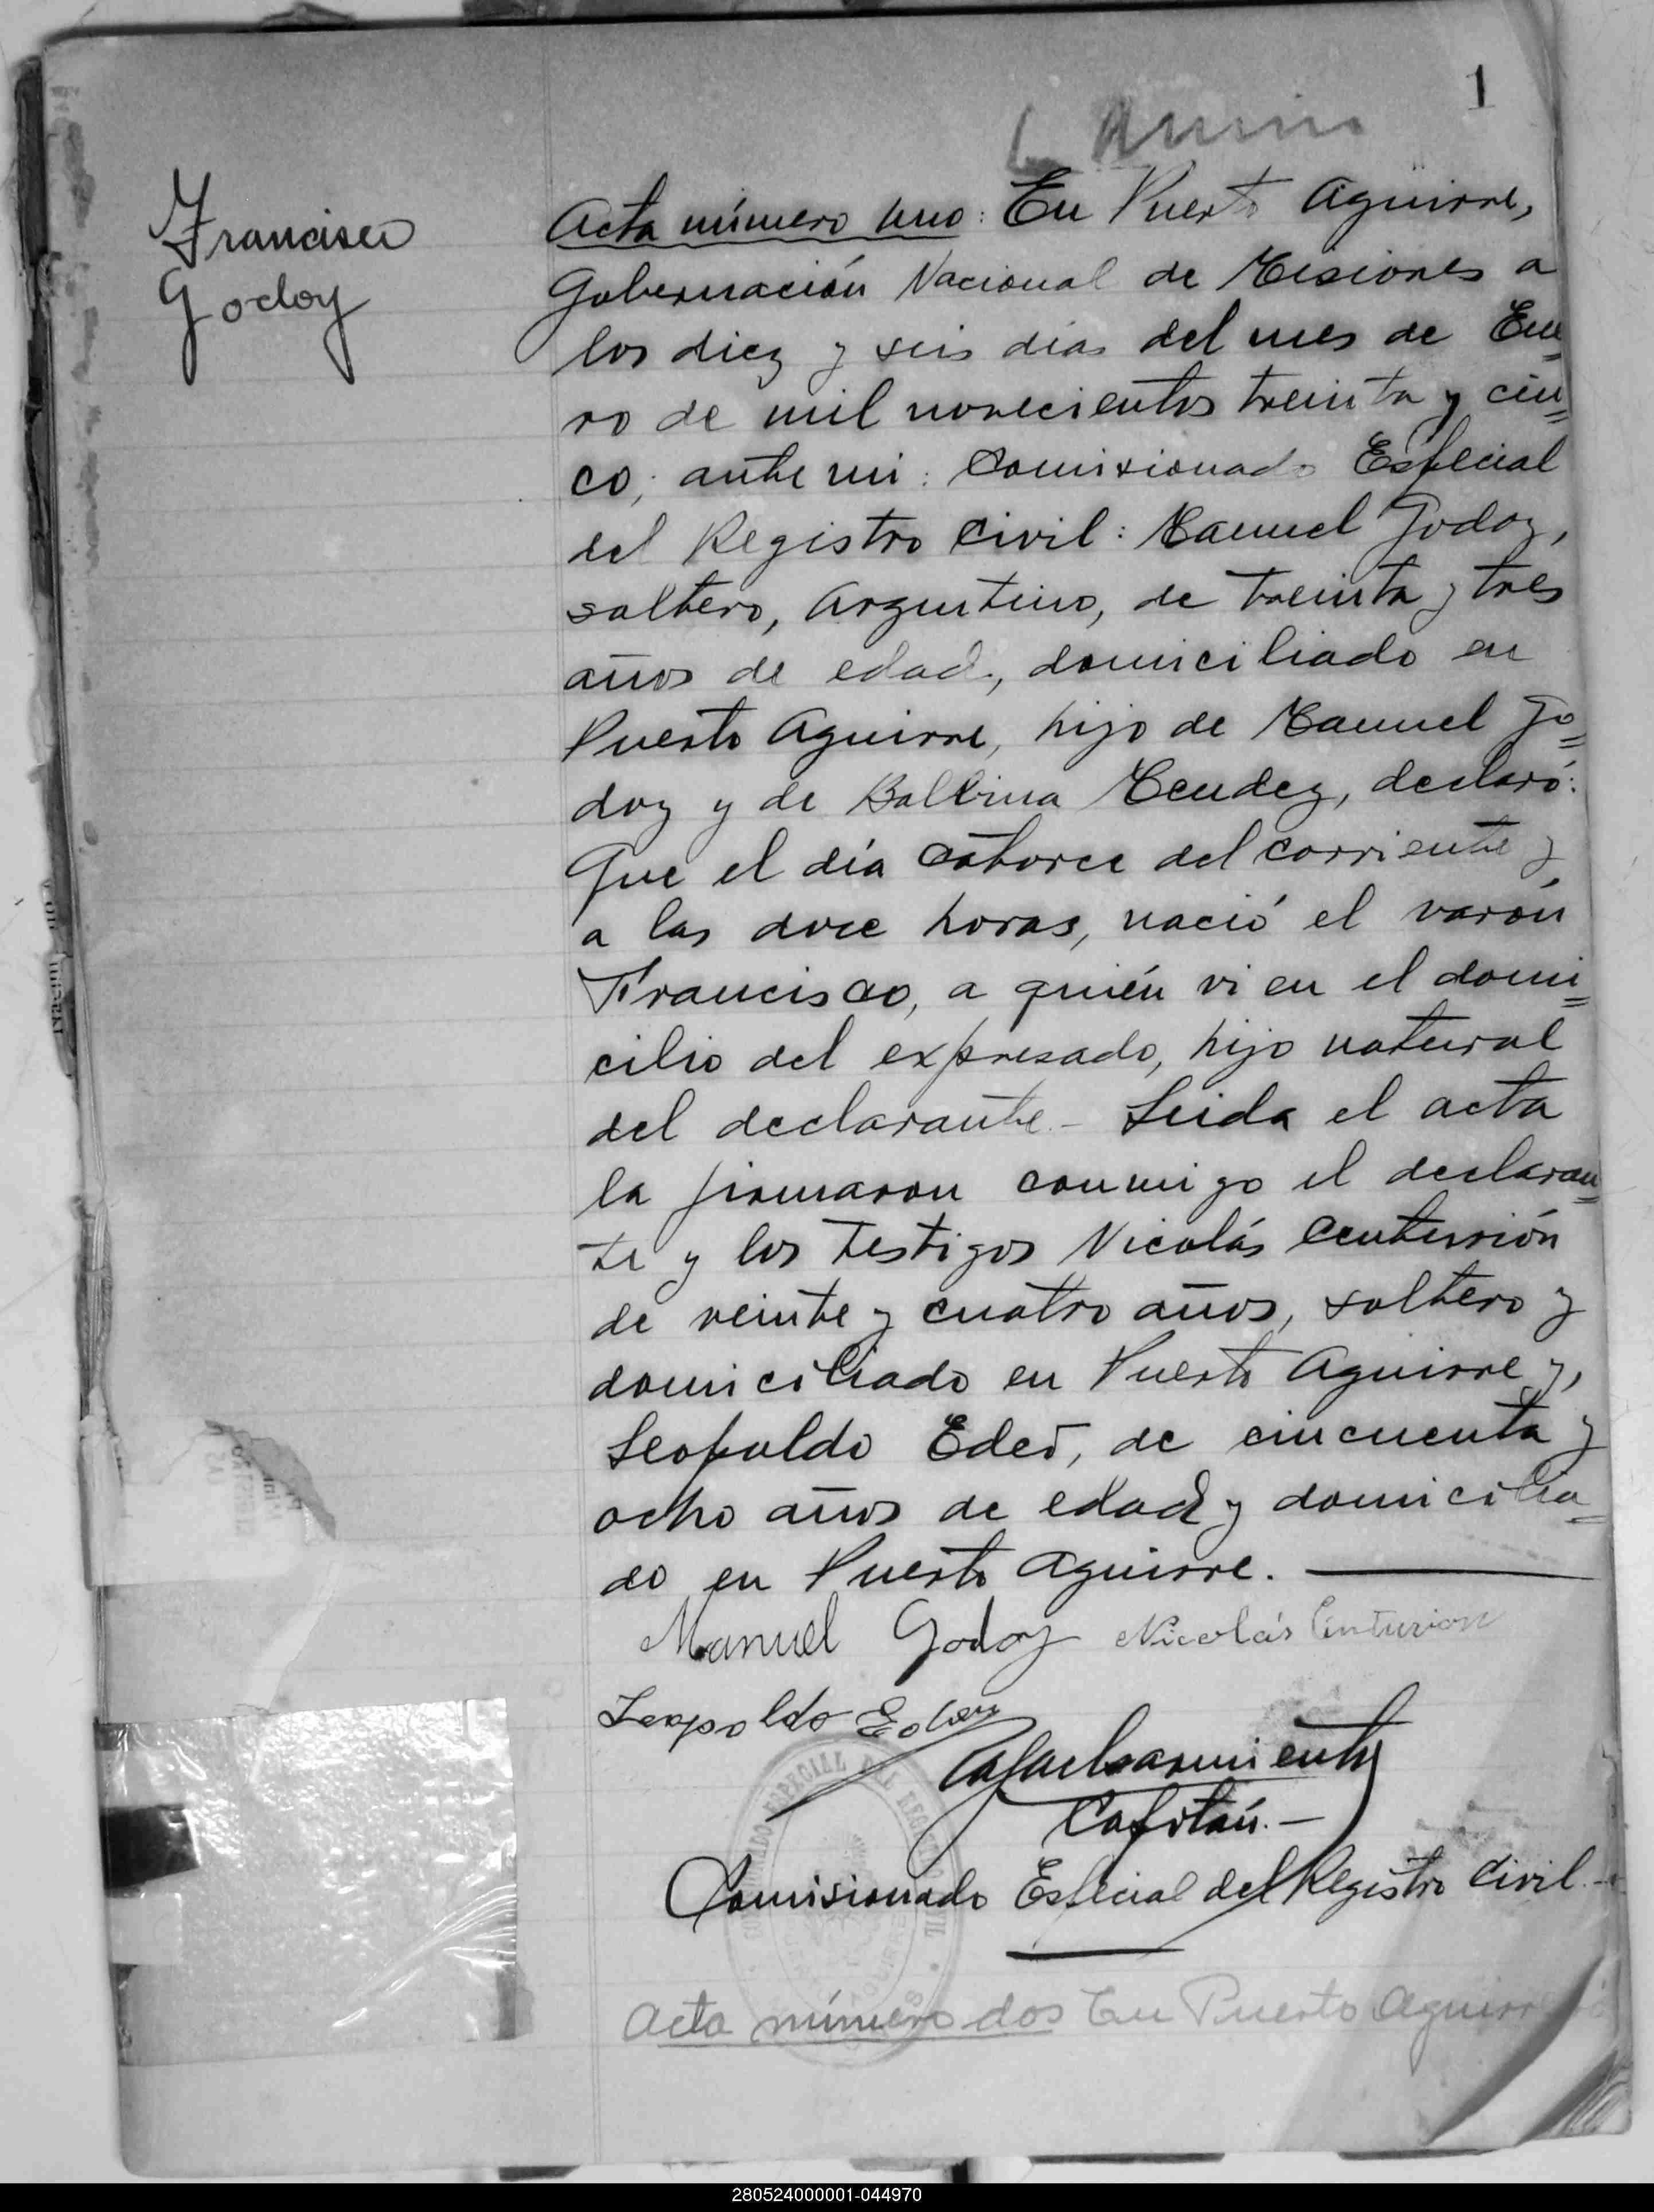 1
Francisco
Godoy
Acta número uno: En Puerto Aguirre,
Gobernación Nacional de Misiones a
los diez y seis días del mes de Ene=
ro de mil novecientos treinta y cin=
co; ante mi: Comisionado Especial
del Registro Civil: Manuel Godoy,
soltero, Argentino, de treinta y tres
años de edad, domiciliado en
Puerto Aguirre, hijo de Manuel Go=
doy y de Balbina Mendez, declaró:
Que el día catorce del corriente y
a las doce horas, nació el varón
Francisco, a quién vi en el domi=
cilio del expresado, hijo natural
del declarante.- Leida el acta
la firmaron conmigo el declaran=
te y los testigos Nicolás Centurión
de veinte y cuatro años, soltero y
domiciliado en Puerto Aguirre y,
Leopoldo Eder, de cincuenta y
ocho años de edad y domicilia=
do en Puerto Aguirre.
Manuel Godoy Nicolás Centurion
Leopoldo Eder
Rafael Sarmiento
Capitán.-
Comisionado Especial del Registro Civil.-
Acta número dos En Puerto Aguirre
280524000001-044970